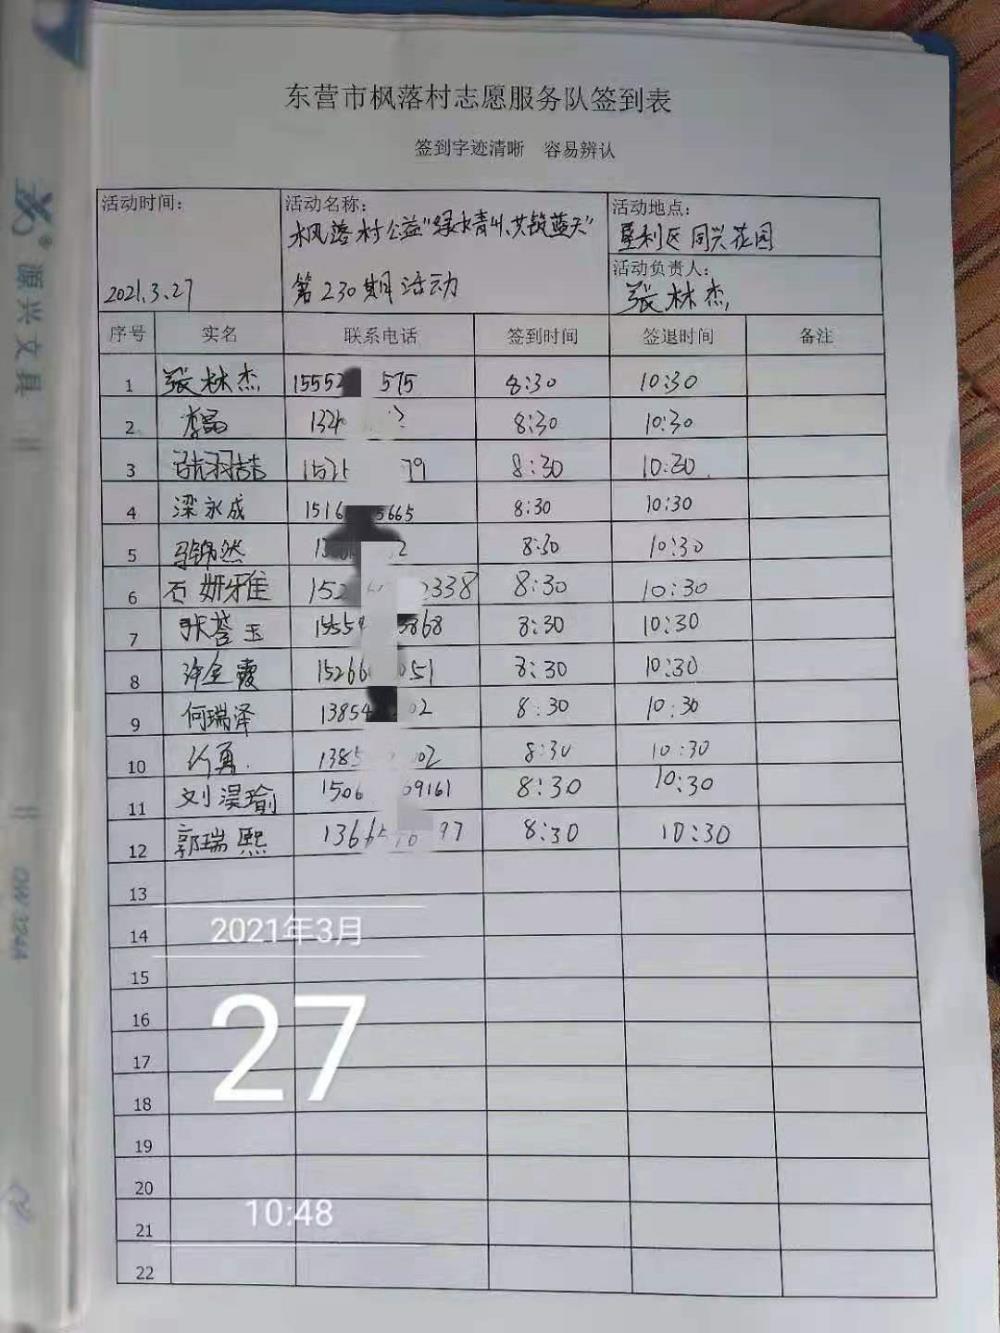 东营市枫落村志愿服务队签到表
签到字迹清晰 容易辨认
活动时间：
2021.3.27
活动名称：
枫落村公益“绿水青山,共筑蓝天”
第230期活动
活动地点：
垦利区同兴花园
活动负责人：
张林杰
序号 实名 联系电话 签到时间 签退时间 备注
1 张林杰 15552 575 8:30 10:30
2 李晶 8:30 10:30
3 张羽喆 79 8:30 10:30
4 梁永成 1516 5665 8:30 10:30
5 马锦然 8:30 10:30
6 石妍雅 152 2338 8:30 10:30
7 张誉玉 1555 3868 8:30 10:30
8 许金霞 15266 051 8:30 10:30
9 何瑞泽 13854 02 8:30 10:30
10 勇 1385 02 8:30 10:30
11 刘淏瑜 1506 09161 8:30 10:30
12 郭瑞熙 1366 97 8:30 10:30
13
14
15
16
17
18
19
20
21
22
2021年3月
27
10:48
源兴文具